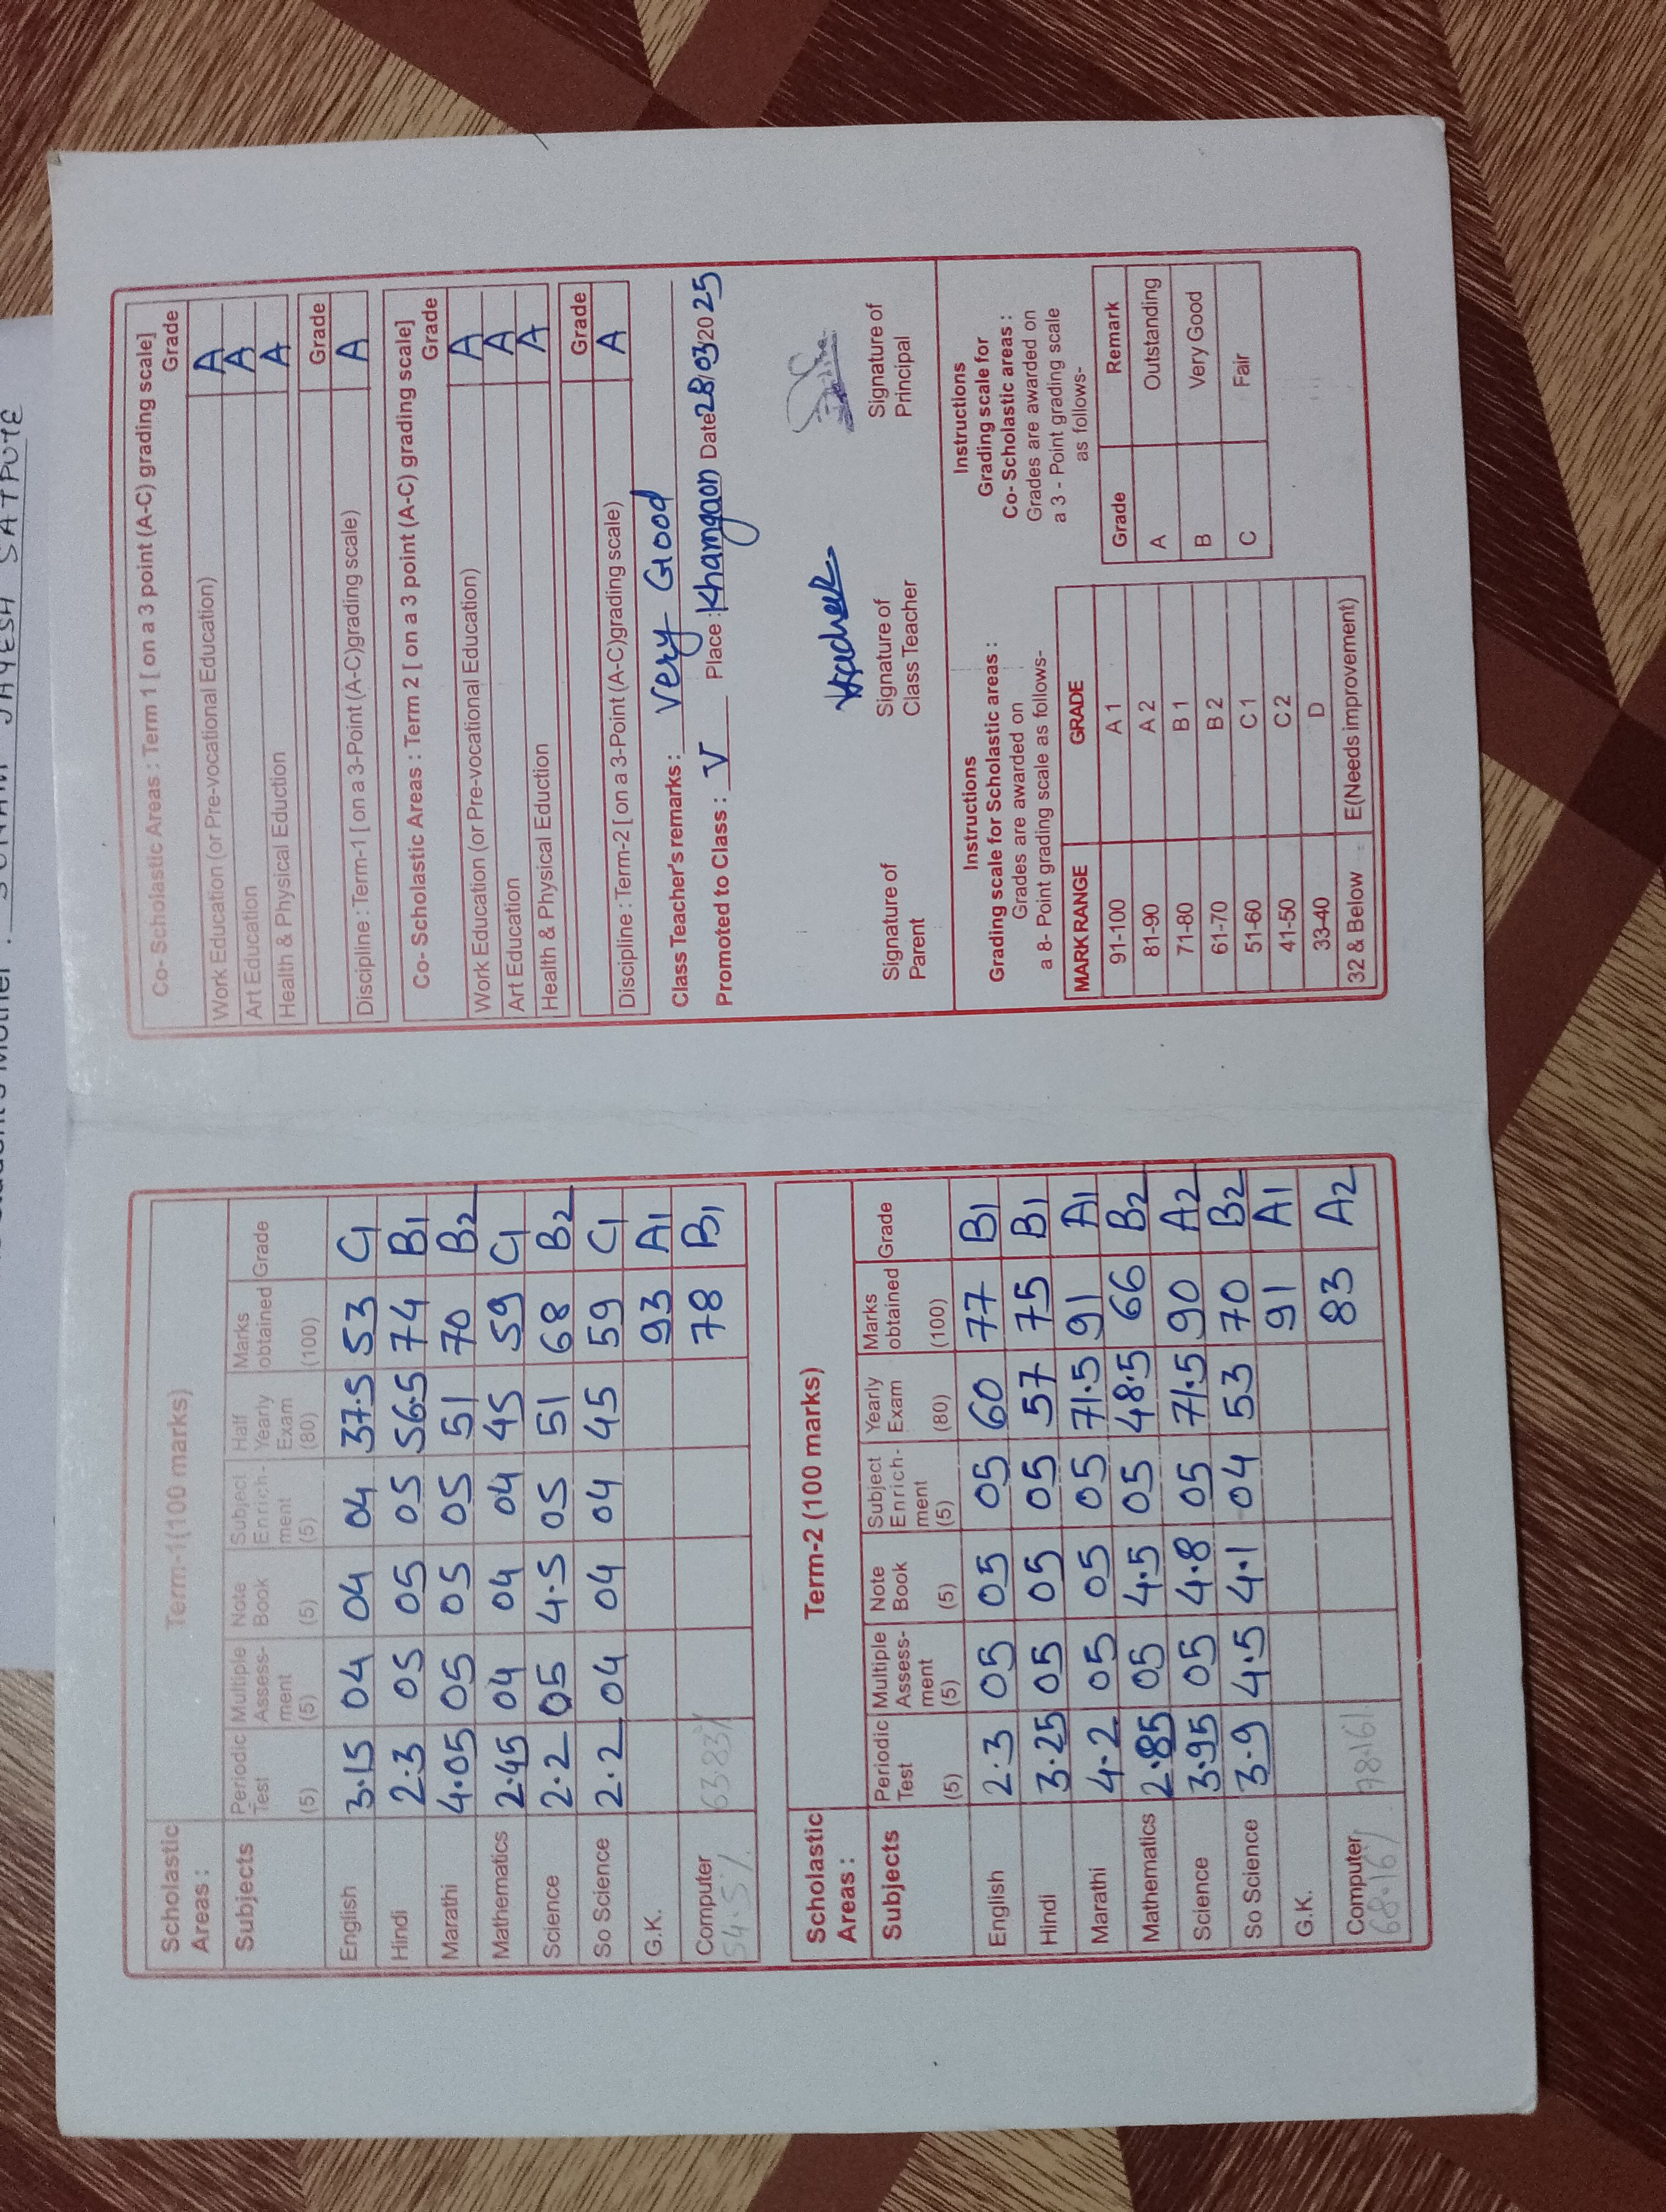 SONAM JAYESH SATPUTE
Scholastic Areas : Term-1(100 marks)
Subjects Periodic Test (5) Multiple Assess-ment (5) Note Book (5) Subject Enrich-ment (5) Half Yearly Exam (80) Marks obtained (100) Grade
English 3.15 04 04 04 37.5 53 C1
Hindi 2.3 05 05 05 56.5 74 B1
Marathi 4.05 05 05 05 51 70 B2
Mathematics 2.45 04 04 04 45 59 C1
Science 2.2 05 4.5 05 51 68 B2
So Science 2.2 04 04 04 45 59 C1
G.K. 93 A1
Computer 78 B1
54.5% 63.83%
Scholastic Areas : Term-2 (100 marks)
Subjects Periodic Test (5) Multiple Assess-ment (5) Note Book (5) Subject Enrich-ment (5) Yearly Exam (80) Marks obtained (100) Grade
English 2.3 05 05 05 60 77 B1
Hindi 3.25 05 05 05 57 75 B1
Marathi 4.2 05 05 05 71.5 91 A1
Mathematics 2.85 05 4.5 05 48.5 66 B2
Science 3.95 05 4.8 05 71.5 90 A2
So Science 3.9 4.5 4.1 04 53 70 B2
G.K. 91 A1
Computer 83 A2
68.16% 78.16%
Co- Scholastic Areas : Term 1 [ on a 3 point (A-C) grading scale]
Grade
Work Education (or Pre-vocational Education) A
Art Education A
Health & Physical Eduction A
Grade
Discipline : Term-1 [ on a 3-Point (A-C)grading scale) A
Co- Scholastic Areas : Term 2 [ on a 3 point (A-C) grading scale]
Grade
Work Education (or Pre-vocational Education) A
Art Education A
Health & Physical Eduction A
Grade
Discipline : Term-2 [ on a 3-Point (A-C)grading scale) A
Class Teacher's remarks : Very Good
Promoted to Class : V Place : Khamgaon Date 28/03/2025
Signature of Parent
Signature of Class Teacher
Signature of Principal
Instructions
Grading scale for Scholastic areas :
Grades are awarded on
a 8- Point grading scale as follows-
MARK RANGE GRADE
91-100 A 1
81-90 A 2
71-80 B 1
61-70 B 2
51-60 C 1
41-50 C 2
33-40 D
32 & Below E(Needs improvement)
Instructions
Grading scale for
Co- Scholastic areas :
Grades are awarded on
a 3 - Point grading scale
as follows-
Grade Remark
A Outstanding
B Very Good
C Fair